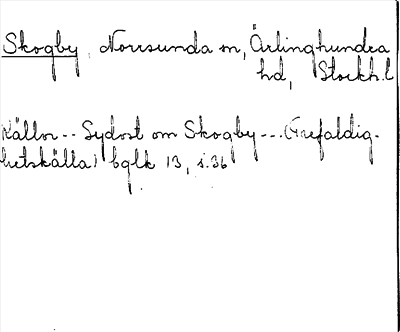 Skogby, Norrsunda sn, Ärlinghundra
hd, Stockh.l
Källor -- Sydost om Skogby --- (Trefaldig-
hetskälla) bglk 13, s.36